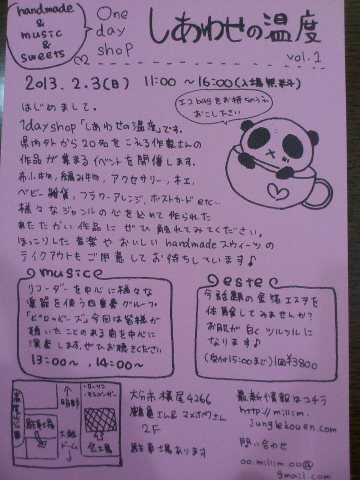 handmade
&
music
&
sweets
One
day
shop
しあわせの温度
vol.1
2013.2.3(日) 11:00～16:00(入場無料)
エコbagをお持ちのうえ
おこし下さい
はじめまして。
1dayshop「しあわせの温度」です。
県内外から20名をこえる作家さんの
作品が集まるイベントを開催します。
布小物、編み物、アクセサリー、木工、
ベビー雑貨、フラワーアレンジ、ポストカードetc…
様々なジャンルの心を込めて作られた
あたたかい作品にぜひ触れてみてください。
ほっこりした音楽やおいしいhandmadeスウィーツの
テイクアウトもご用意してお待ちしています♪
musice
リコーダーを中心に様々な
楽器を使う四重奏グループ
「ピロッピーズ」今回は皆様が
聴いたことのある曲を中心に
演奏します。ぜひお聴きください
13:00～、14:00～
este
今話題の金箔エステを
体験してみませんか?
お肌が白くツルツルに
なります♪
(受付15:00まで)1回¥3800
高尾山公園
↑明野
駐車場
↓大銀
ドーム
ローソン
モスバーガー
会場
大分市横尾4266
2F
駐車場あります
最新情報はコチラ
http://milim.
junglekouen.com
問い合わせ
oo.milim.oo@
gmail.com